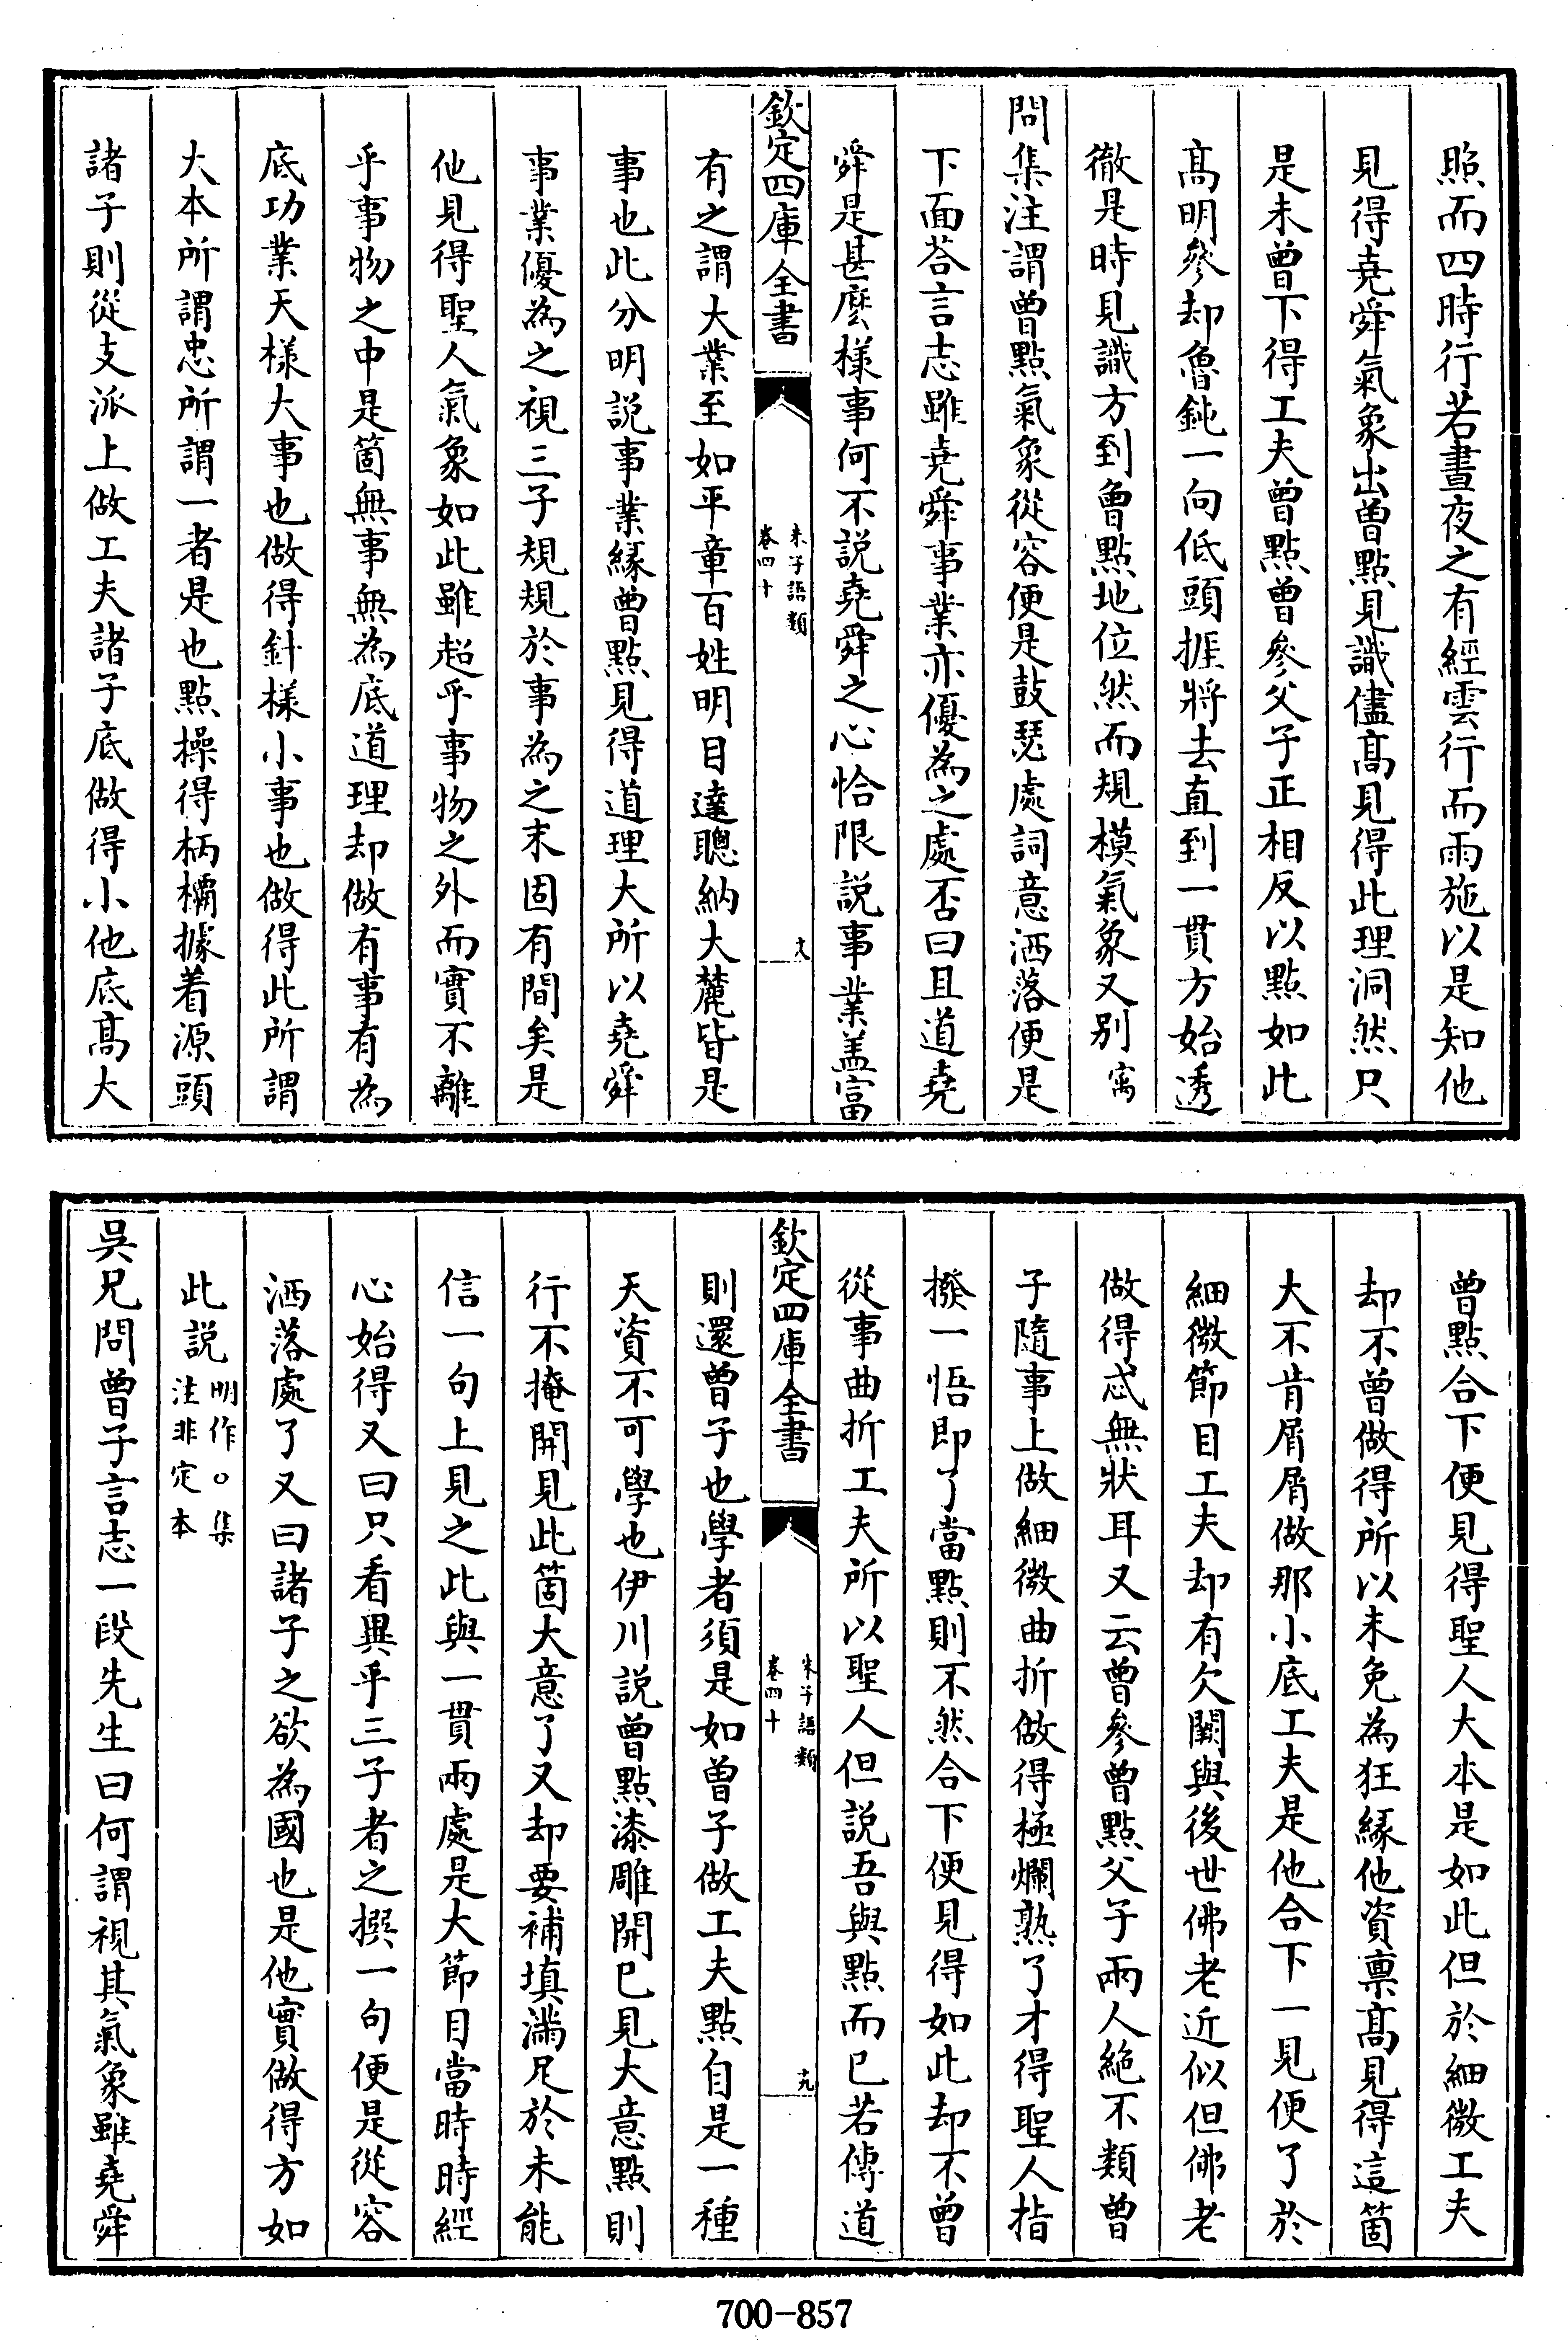 照而四時行若晝夜之有經雲行而雨施以是知他
見得堯舜氣象出曽點見識儘髙見得此理洞然只
是未曾下得工夫曾點曾參父子正相反以點如此
髙明參却魯鈍一向低頭捱將去直到一貫方始透
徹是時見識方到曾點地位然而規模氣象又别㝢
問集注謂曽點氣象從容便是鼓瑟處詞意洒落便是
下面荅言志雖堯舜事業亦優為之處否曰且道堯
舜是甚麽樣事何不説堯舜之心恰限説事業盖富
欽定四庫全書
朱子語類
卷四十
十八
有之謂大業至如平章百姓明目達聰納大麓皆是
事也此分明説事業縁曾點見得道理大所以堯舜
事業優為之視三子規規於事為之末固有間矣是
他見得聖人氣象如此雖超乎事物之外而實不離
乎事物之中是箇無事無為底道理却做有事有為
底功業天様大事也做得針様小事也做得此所謂
大本所謂忠所謂一者是也點操得柄欛據着源頭
諸子則從支派上做工夫諸子底做得小他底髙大
曾點合下便見得聖人大本是如此但於細微工夫
却不曾做得所以未免為狂縁他資禀髙見得這箇
大不肯屑屑做那小底工夫是他合下一見便了於
細微節目工夫却有欠闕與後世佛老近似但佛老
做得忒無狀耳又云曾參曾點父子兩人絶不類曾
子隨事上做細微曲折做得極爛熟了才得聖人指
撥一悟即了當點則不然合下便見得如此却不曾
從事曲折工夫所以聖人但説吾與點而已若傳道
欽定四庫全書
朱子語類
卷四十
十九
則還曾子也學者須是如曾子做工夫點自是一種
天資不可學也伊川説曾點漆雕開已見大意點則
行不掩開見此箇大意了又却要補填滿足於未能
信一句上見之此與一貫兩處是大節目當時時經
心始得又曰只看異乎三子者之撰一句便是從容
洒落處了又曰諸子之欲為國也是他實做得方如
此説明作○集
注非定本
吳兄問曾子言志一段先生曰何謂視其氣象雖堯舜
700-857